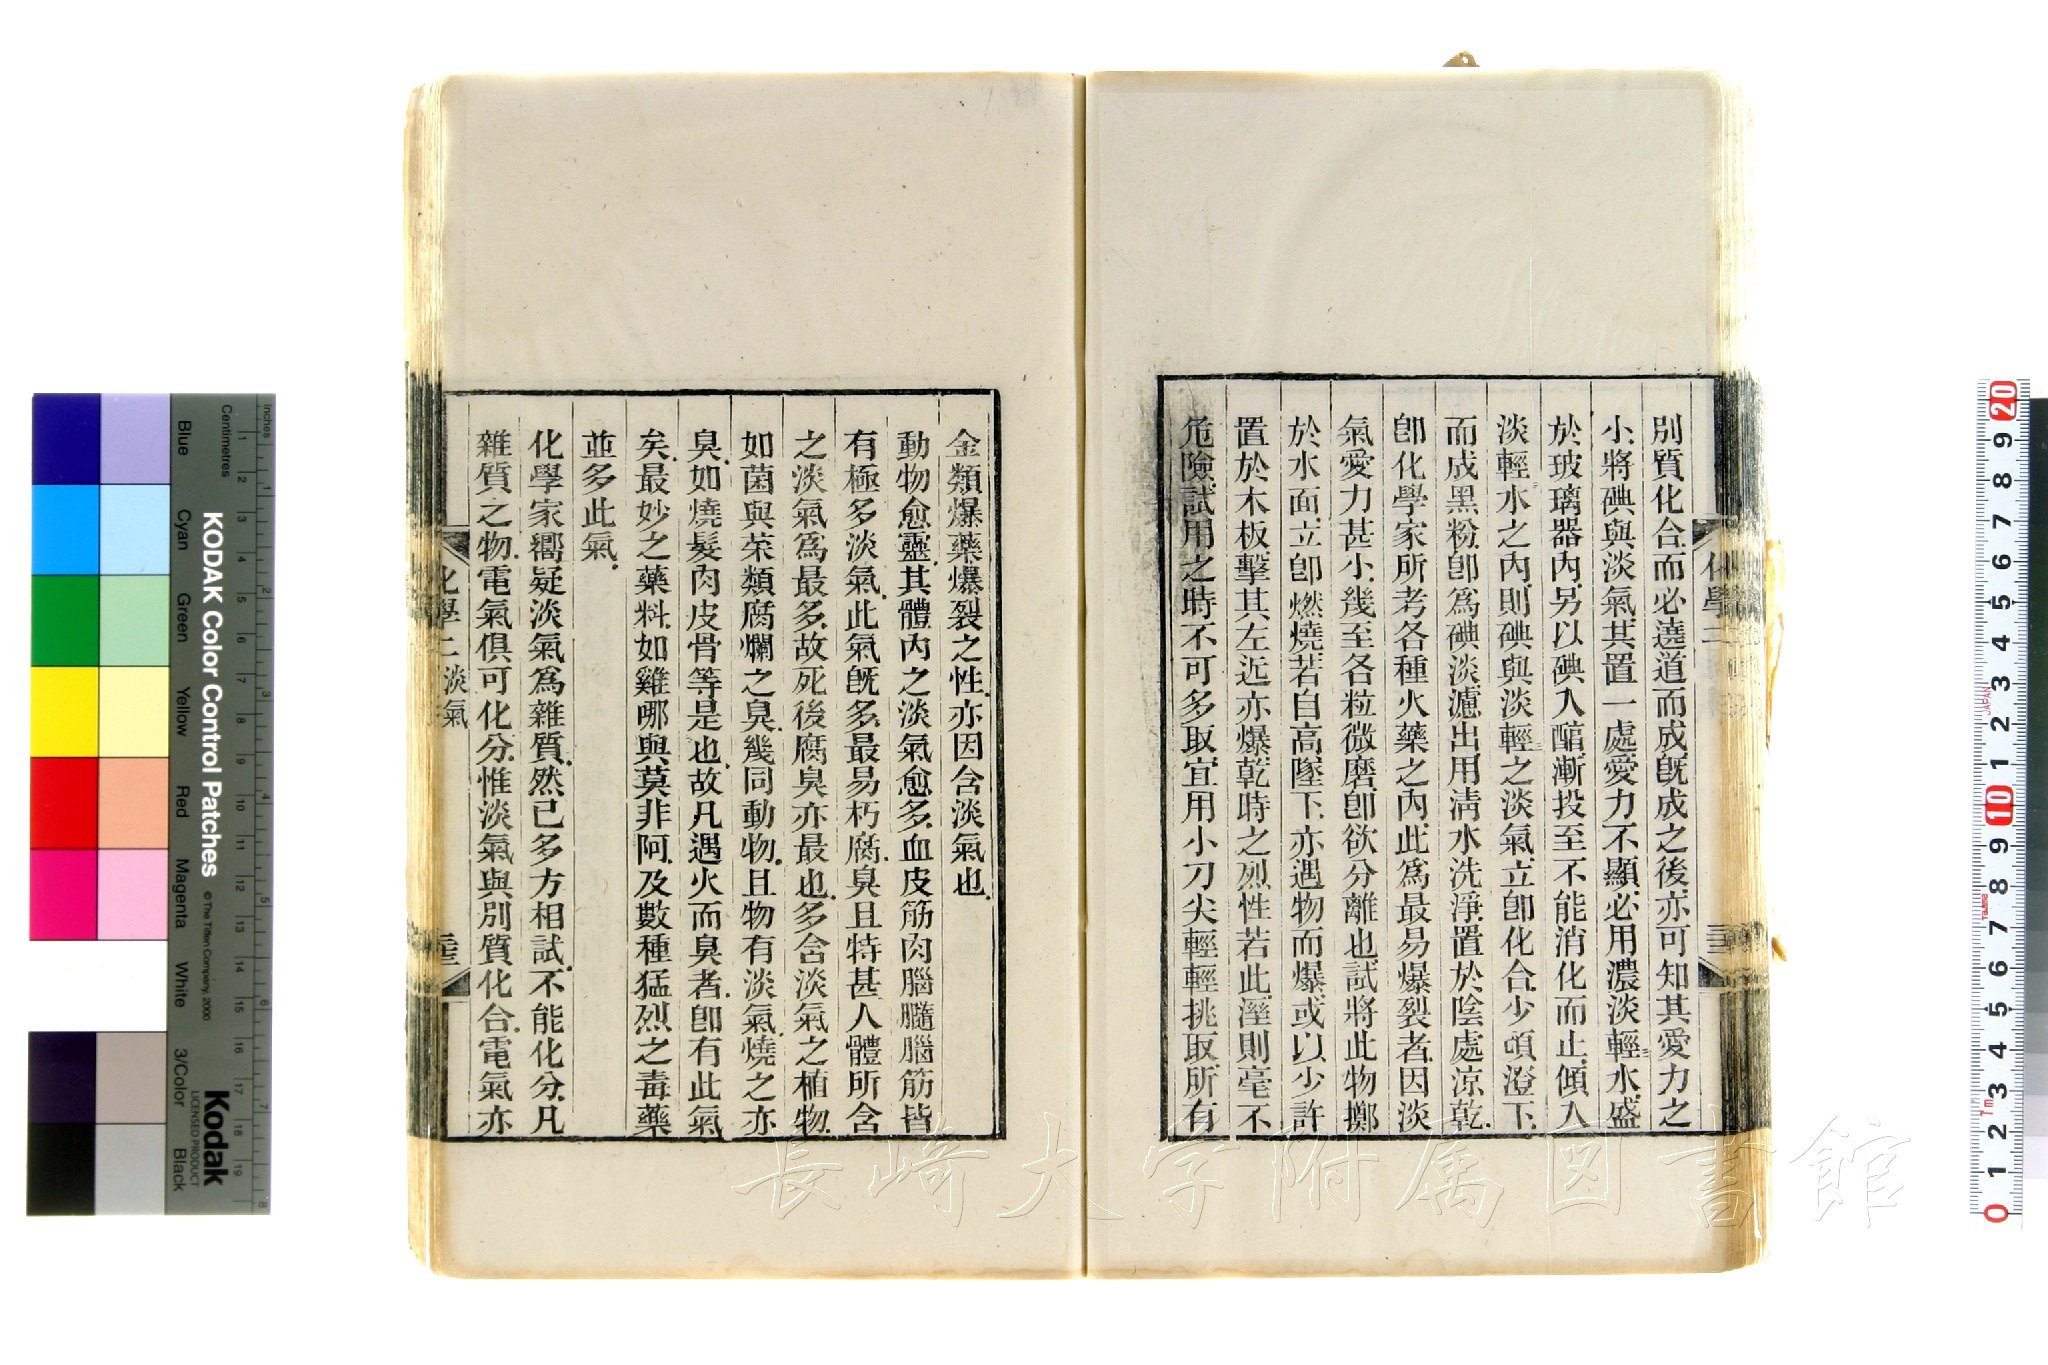 別質化合而必遶道而成旣成之後亦可知其愛力之
小將碘與淡氣其置一處愛力不顯必用濃淡輕水盛
於玻璃器內另以碘入醕漸投至不能消化而止傾入
淡輕水之內則碘與淡輕之淡氣立卽化合少頃澄下
而成黑粉卽爲碘淡濾出用淸水洗淨置於陰處涼乾
卽化學家所考各種火藥之內此爲最易爆裂者因淡
氣愛力甚小幾至各粒微磨卽欲分離也試將此物擲
於水面立卽燃燒若自高墜下亦遇物而爆或以少許
置於木板擊其左近亦爆乾時之烈性若此溼則毫不
危險試用之時不可多取宜用小刀尖輕輕挑取所有
化學二
金類爆藥爆裂之性亦因含淡氣也
動物愈靈其體內之淡氣愈多血皮筋肉腦髓腦筋皆
有極多淡氣此氣旣多最易朽腐臭且特甚人體所含
之淡氣爲最多故死後腐臭亦最也多含淡氣之植物
如菌與茶類腐爛之臭幾同動物且物有淡氣燒之亦
臭如燒髮肉皮骨等是也故凡遇火而臭者卽有此氣
矣最妙之藥料如雞哪與莫非阿及數種猛烈之毒藥
並多此氣
化學家嚮疑淡氣爲雜質然已多方相試不能化分凡
雜質之物電氣俱可化分惟淡氣與別質化合電氣亦
化學二 淡氣
長崎大学附属図書館
KODAK Color Control Patches
© The Tiffen Company, 2000
Kodak
LICENSED PRODUCT
Inches
Centimetres
Blue
Cyan
Green
Yellow
Red
Magenta
White
3/Color
Black